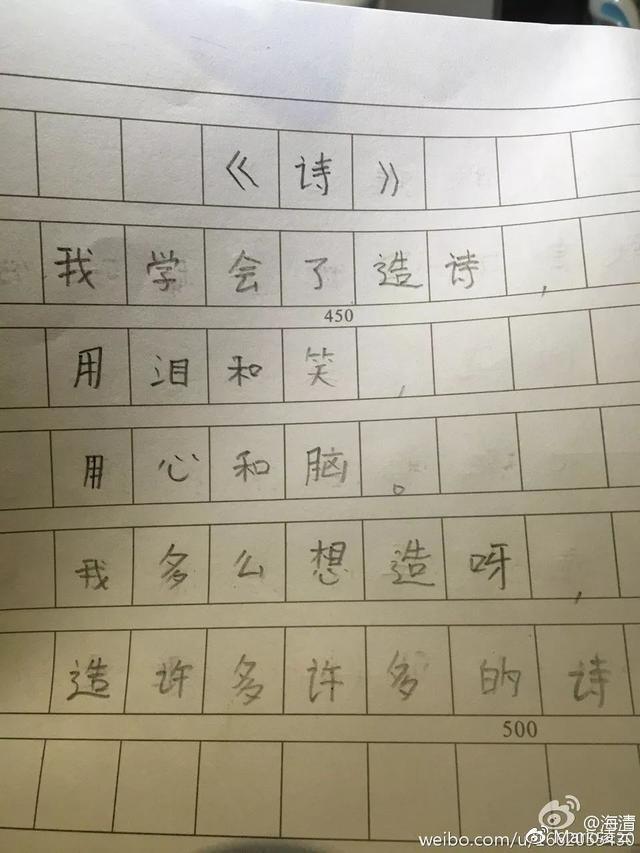 《诗》
我学会了造诗，
450
用泪和笑，
用心和脑。
我多么想造呀，
造许许多多的诗
500
@海清